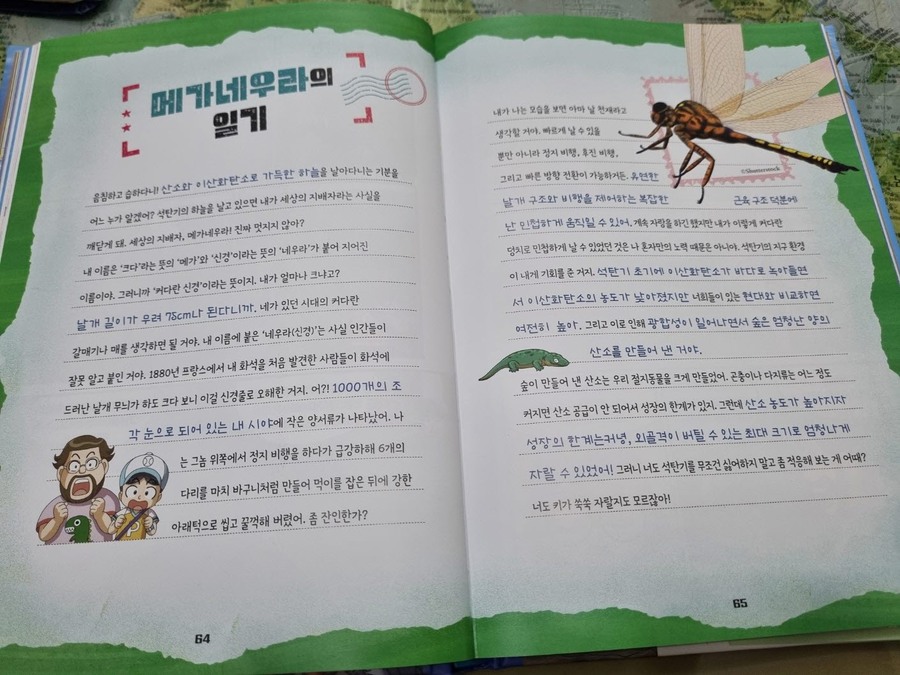 메가네우라의
일기
음침하고 습하다니! 산소와 이산화탄소로 가득한 하늘을 날아다니는 기분을
어느 누가 알겠어? 석탄기의 하늘을 날고 있으면 내가 세상의 지배자라는 사실을
깨닫게 돼. 세상의 지배자, 메가네우라! 진짜 멋지지 않아?
내 이름은 '크다'라는 뜻의 '메가'와 '신경'이라는 뜻의 '네우라'가 붙어 지어진
이름이야. 그러니까 '커다란 신경'이라는 뜻이지. 내가 얼마나 크냐고?
날개 길이가 무려 75cm나 된다니까. 네가 있던 시대의 커다란
갈매기나 매를 생각하면 될 거야. 내 이름에 붙은 '네우라(신경)'는 사실 인간들이
잘못 알고 붙인 거야. 1880년 프랑스에서 내 화석을 처음 발견한 사람들이 화석에
드러난 날개 무늬가 하도 크다 보니 이걸 신경줄로 오해한 거지. 어?! 1000개의 조
각 눈으로 되어 있는 내 시야에 작은 양서류가 나타났어. 나
는 그놈 위쪽에서 정지 비행을 하다가 급강하해 6개의
다리를 마치 바구니처럼 만들어 먹이를 잡은 뒤에 강한
아래턱으로 씹고 꿀꺽해 버렸어. 좀 잔인한가?
64
내가 나는 모습을 보면 아마 날 천재라고
생각할 거야. 빠르게 날 수 있을
뿐만 아니라 정지 비행, 후진 비행,
그리고 빠른 방향 전환이 가능하거든. 유연한
날개 구조와 비행을 제어하는 복잡한 근육 구조 덕분에
난 민첩하게 움직일 수 있어. 계속 자랑을 하긴 했지만 내가 이렇게 커다란
덩치로 민첩하게 날 수 있었던 것은 나 혼자만의 노력 때문은 아니야. 석탄기의 지구 환경
이 내게 기회를 준 거지. 석탄기 초기에 이산화탄소가 바다로 녹아들면
서 이산화탄소의 농도가 낮아졌지만 너희들이 있는 현대와 비교하면
여전히 높아. 그리고 이로 인해 광합성이 일어나면서 숲은 엄청난 양의
산소를 만들어 낸 거야.
숲이 만들어 낸 산소는 우리 절지동물을 크게 만들었어. 곤충이나 다지류는 어느 정도
커지면 산소 공급이 안 되어서 성장의 한계가 있지. 그런데 산소 농도가 높아지자
성장의 한계는커녕, 외골격이 버틸 수 있는 최대 크기로 엄청나게
자랄 수 있었어! 그러니 너도 석탄기를 무조건 싫어하지 말고 좀 적응해 보는 게 어때?
너도 키가 쑥쑥 자랄지도 모르잖아!
©Shutterstock
65